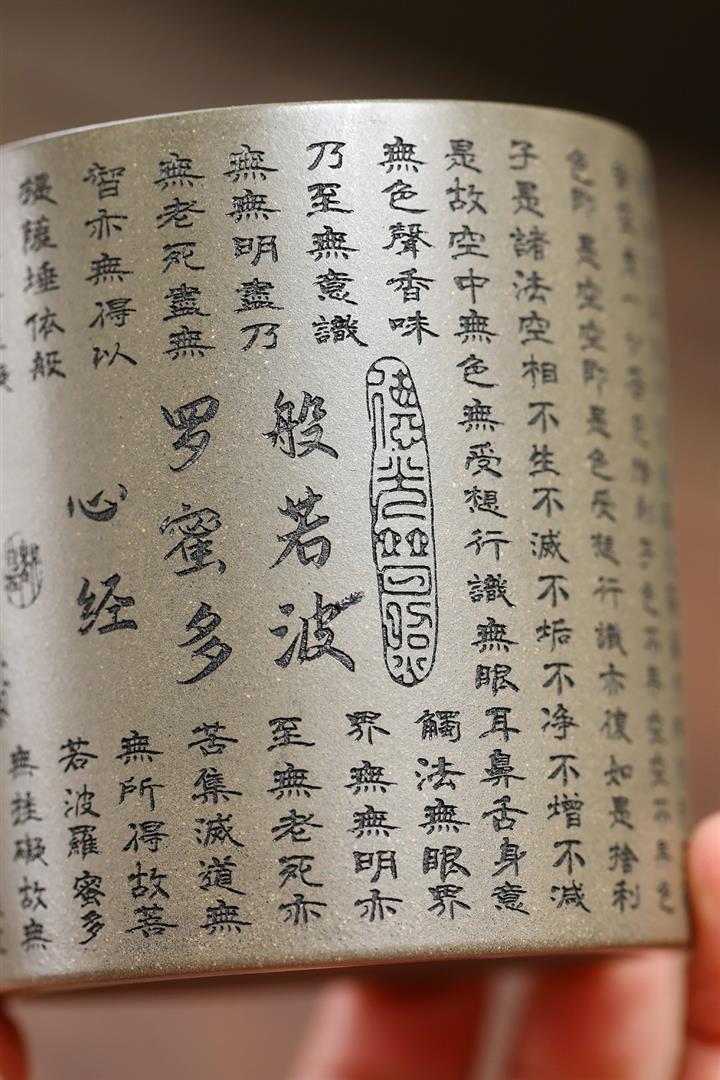 色即是空空即是色受想行識亦復如是捨利
子是諸法空相不生不滅不垢不净不增不減
是故空中無色無受想行識無眼耳鼻舌身意
無色聲香味
觸法無眼界
乃至無意識
界無無明亦
無無明盡乃
至無老死亦
無老死盡無
苦集滅道無
智亦無得以
無所得故菩
提薩埵依般
若波羅蜜多
無挂礙故無
般若波
罗蜜多
心经